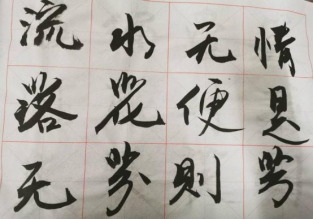 流水无情
落花便是
无 则